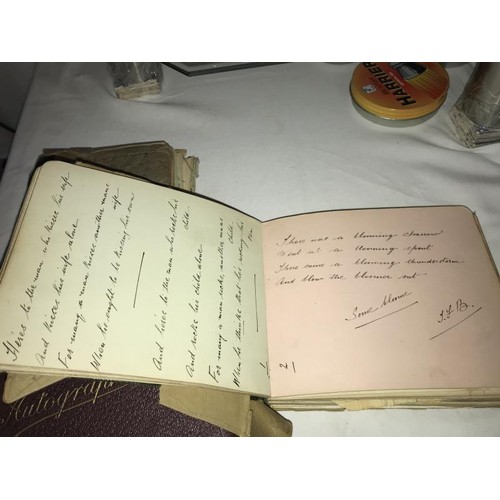 Here's to the man who kisses his wife
And kisses his wife alone
For many a man kisses another mans wife
When he ought to be kissing his own
And here's to the man who rocks his child
And rocks his child alone
For many a man rocks another mans child
When he thinks that he's rocking his own
There was a blooming
Went up a blooming spout
There came a blooming thunderstorm
And blow the bloomer out
Some bloome
J.F.B.
21
Autograph
HARRIER